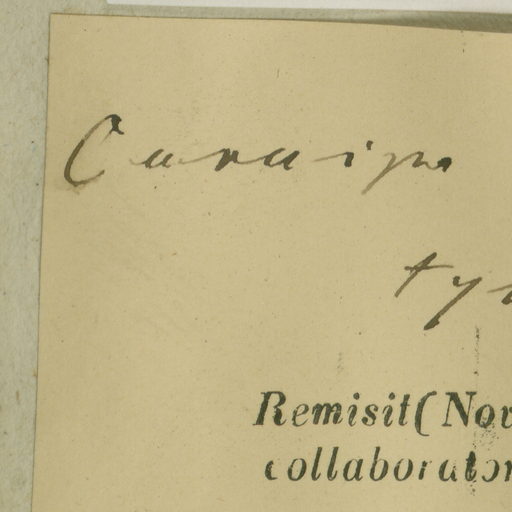 Caraipa
ty
Remisit (Nov
collaborator